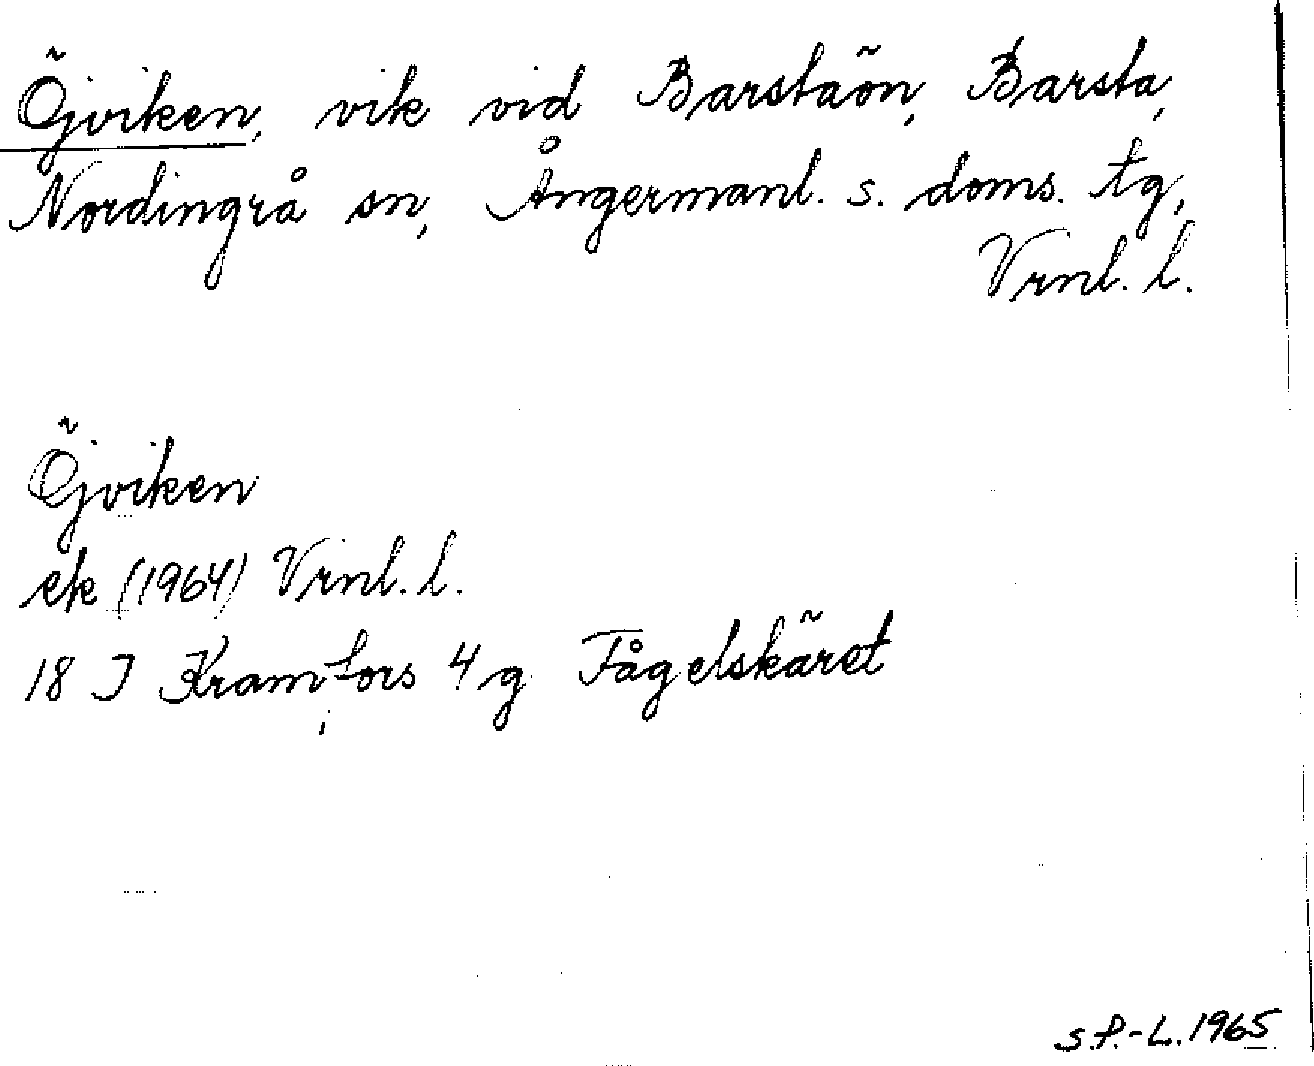 Öjviken, vik vid Barstaön, Barsta,
Nordingrå sn, Ångermanl. s. doms. tg,
Vrnl. l.
Öjviken
ek (1964) Vrnl. l.
18 J Kramfors 4 g Fågelskäret
S.P.-L. 1965